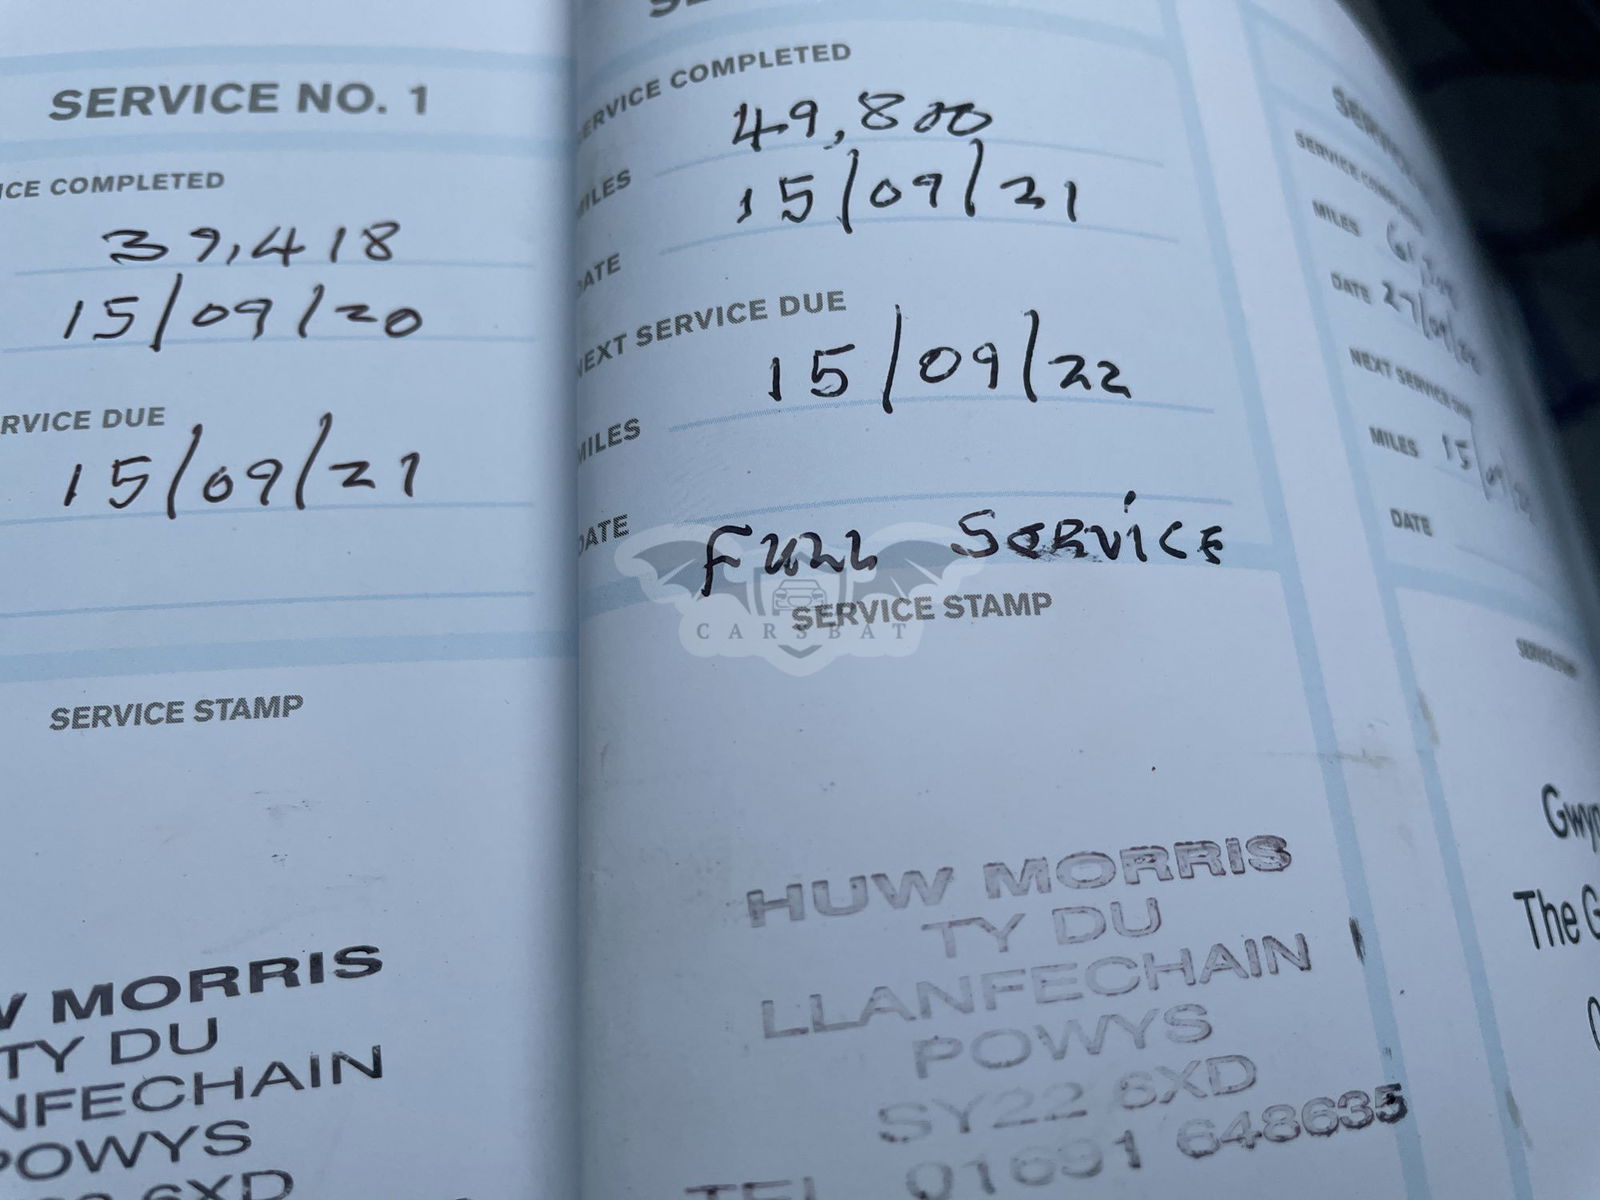 SERVICE NO. 1
ICE COMPLETED
39,418
15/09/20
RVICE DUE
15/09/21
SERVICE STAMP
W MORRIS
TY DU
NFECHAIN
POWYS
6XD
SERVICE COMPLETED
49,800
MILES
15/09/21
DATE
NEXT SERVICE DUE
15/09/22
MILES
DATE
FULL SERVICE
CARSBAT
SERVICE STAMP
HUW MORRIS
TY DU
LLANFECHAIN
POWYS
SY22 6XD
TEL 01691 648635
SERVICE COMPLETED
MILES
DATE 27/09/22
NEXT SERVICE DUE
MILES 15/09
DATE
SERVICE STAMP
Gwyn
The G